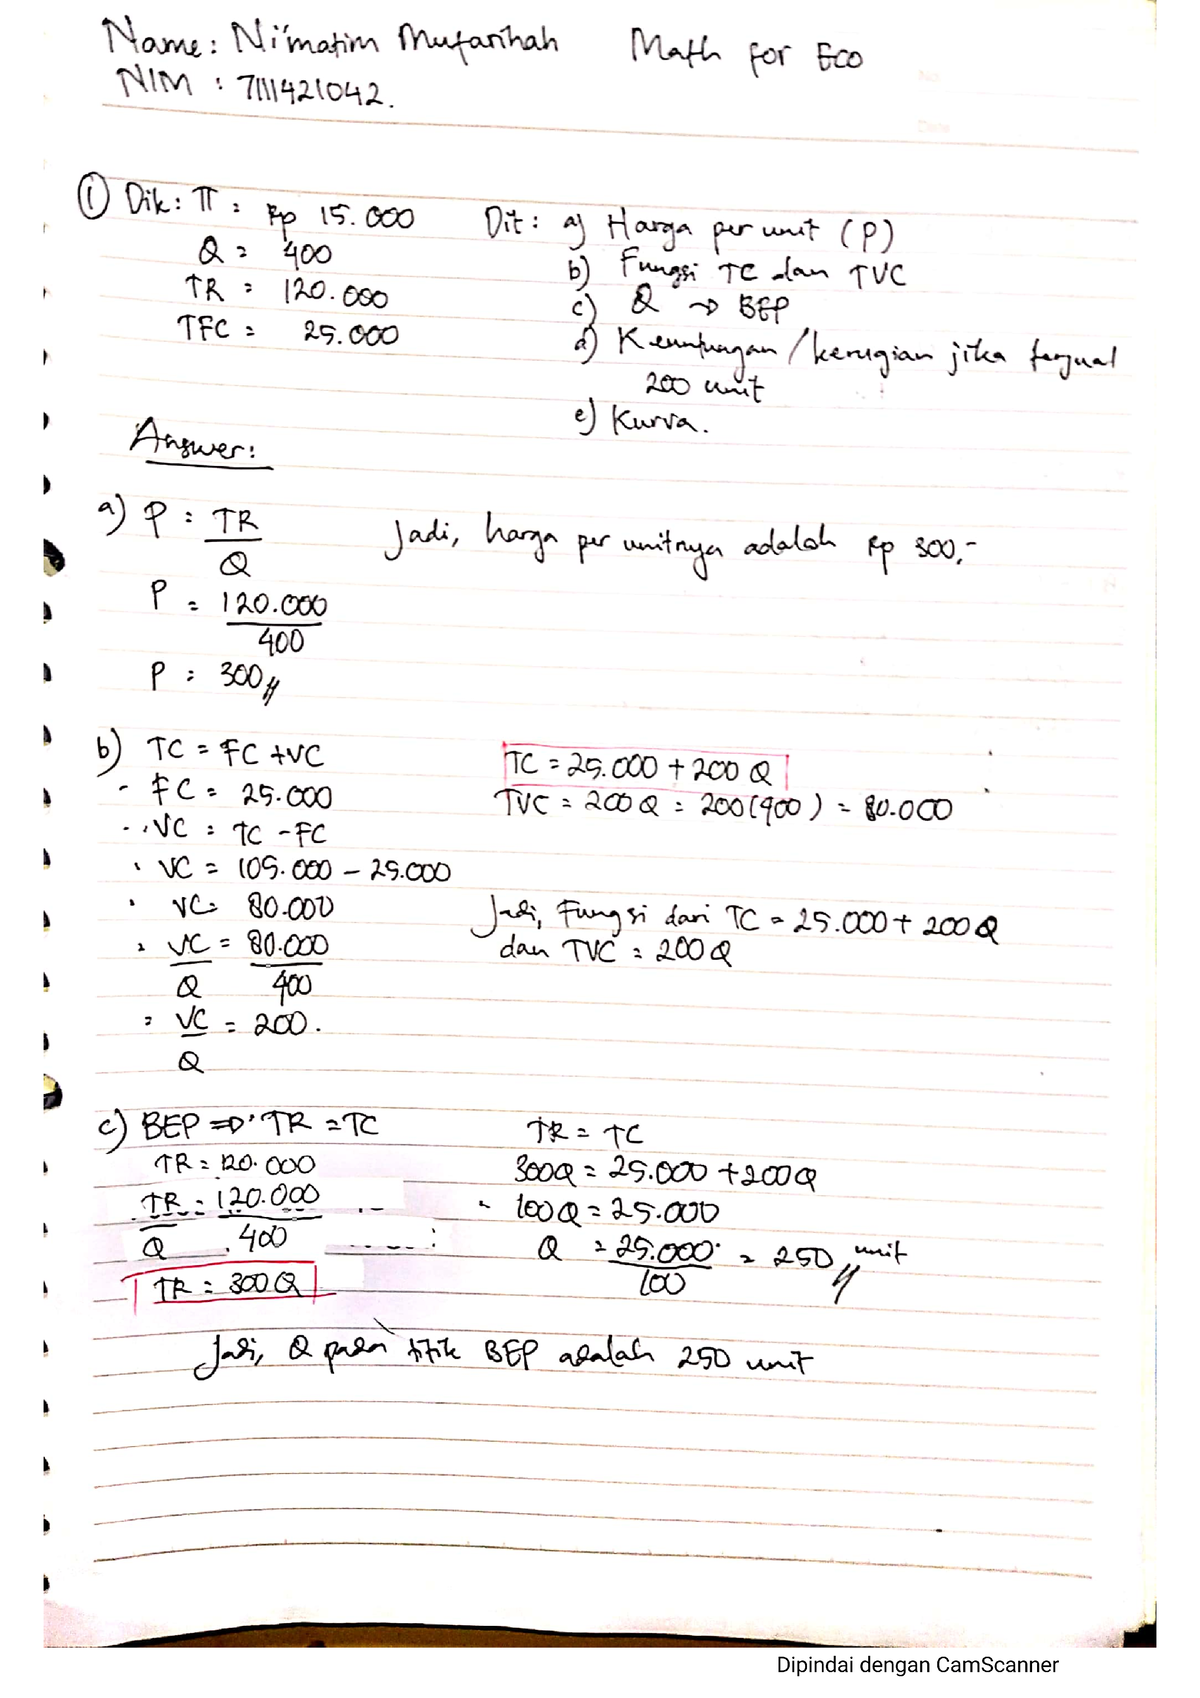 Name: Ni'matim Mufarihah Math for Eco
NIM : 7111421042.
① Dik: π = Rp 15.000 Dit: a) Harga per unit (P)
Q = 400 b) Fungsi TC dan TVC
TR = 120.000 c) Q → BEP
TFC = 25.000 d) Keuntungan/kerugian jika terjual
200 unit
e) Kurva.
Answer:
a) P = TR
Q
Jadi, harga per unitnya adalah Rp 300,-
P = 120.000
400
P = 300//
b) TC = FC + VC TC = 25.000 + 200 Q
- FC = 25.000 TVC = 200 Q = 200(400) = 80.000
- VC = TC - FC
VC = 105.000 - 25.000
VC = 80.000 Jadi, Fungsi dari TC = 25.000 + 200 Q
VC = 80.000 dan TVC = 200 Q
Q 400
= VC = 200.
Q
c) BEP ⇒ TR = TC TR = TC
TR = 120.000 300Q = 25.000 + 200Q
TR = 120.000 100Q = 25.000
Q 400 Q = 25.000 = 250 // unit
TR = 300 Q 100
Jadi, Q pada titik BEP adalah 250 unit
Dipindai dengan CamScanner